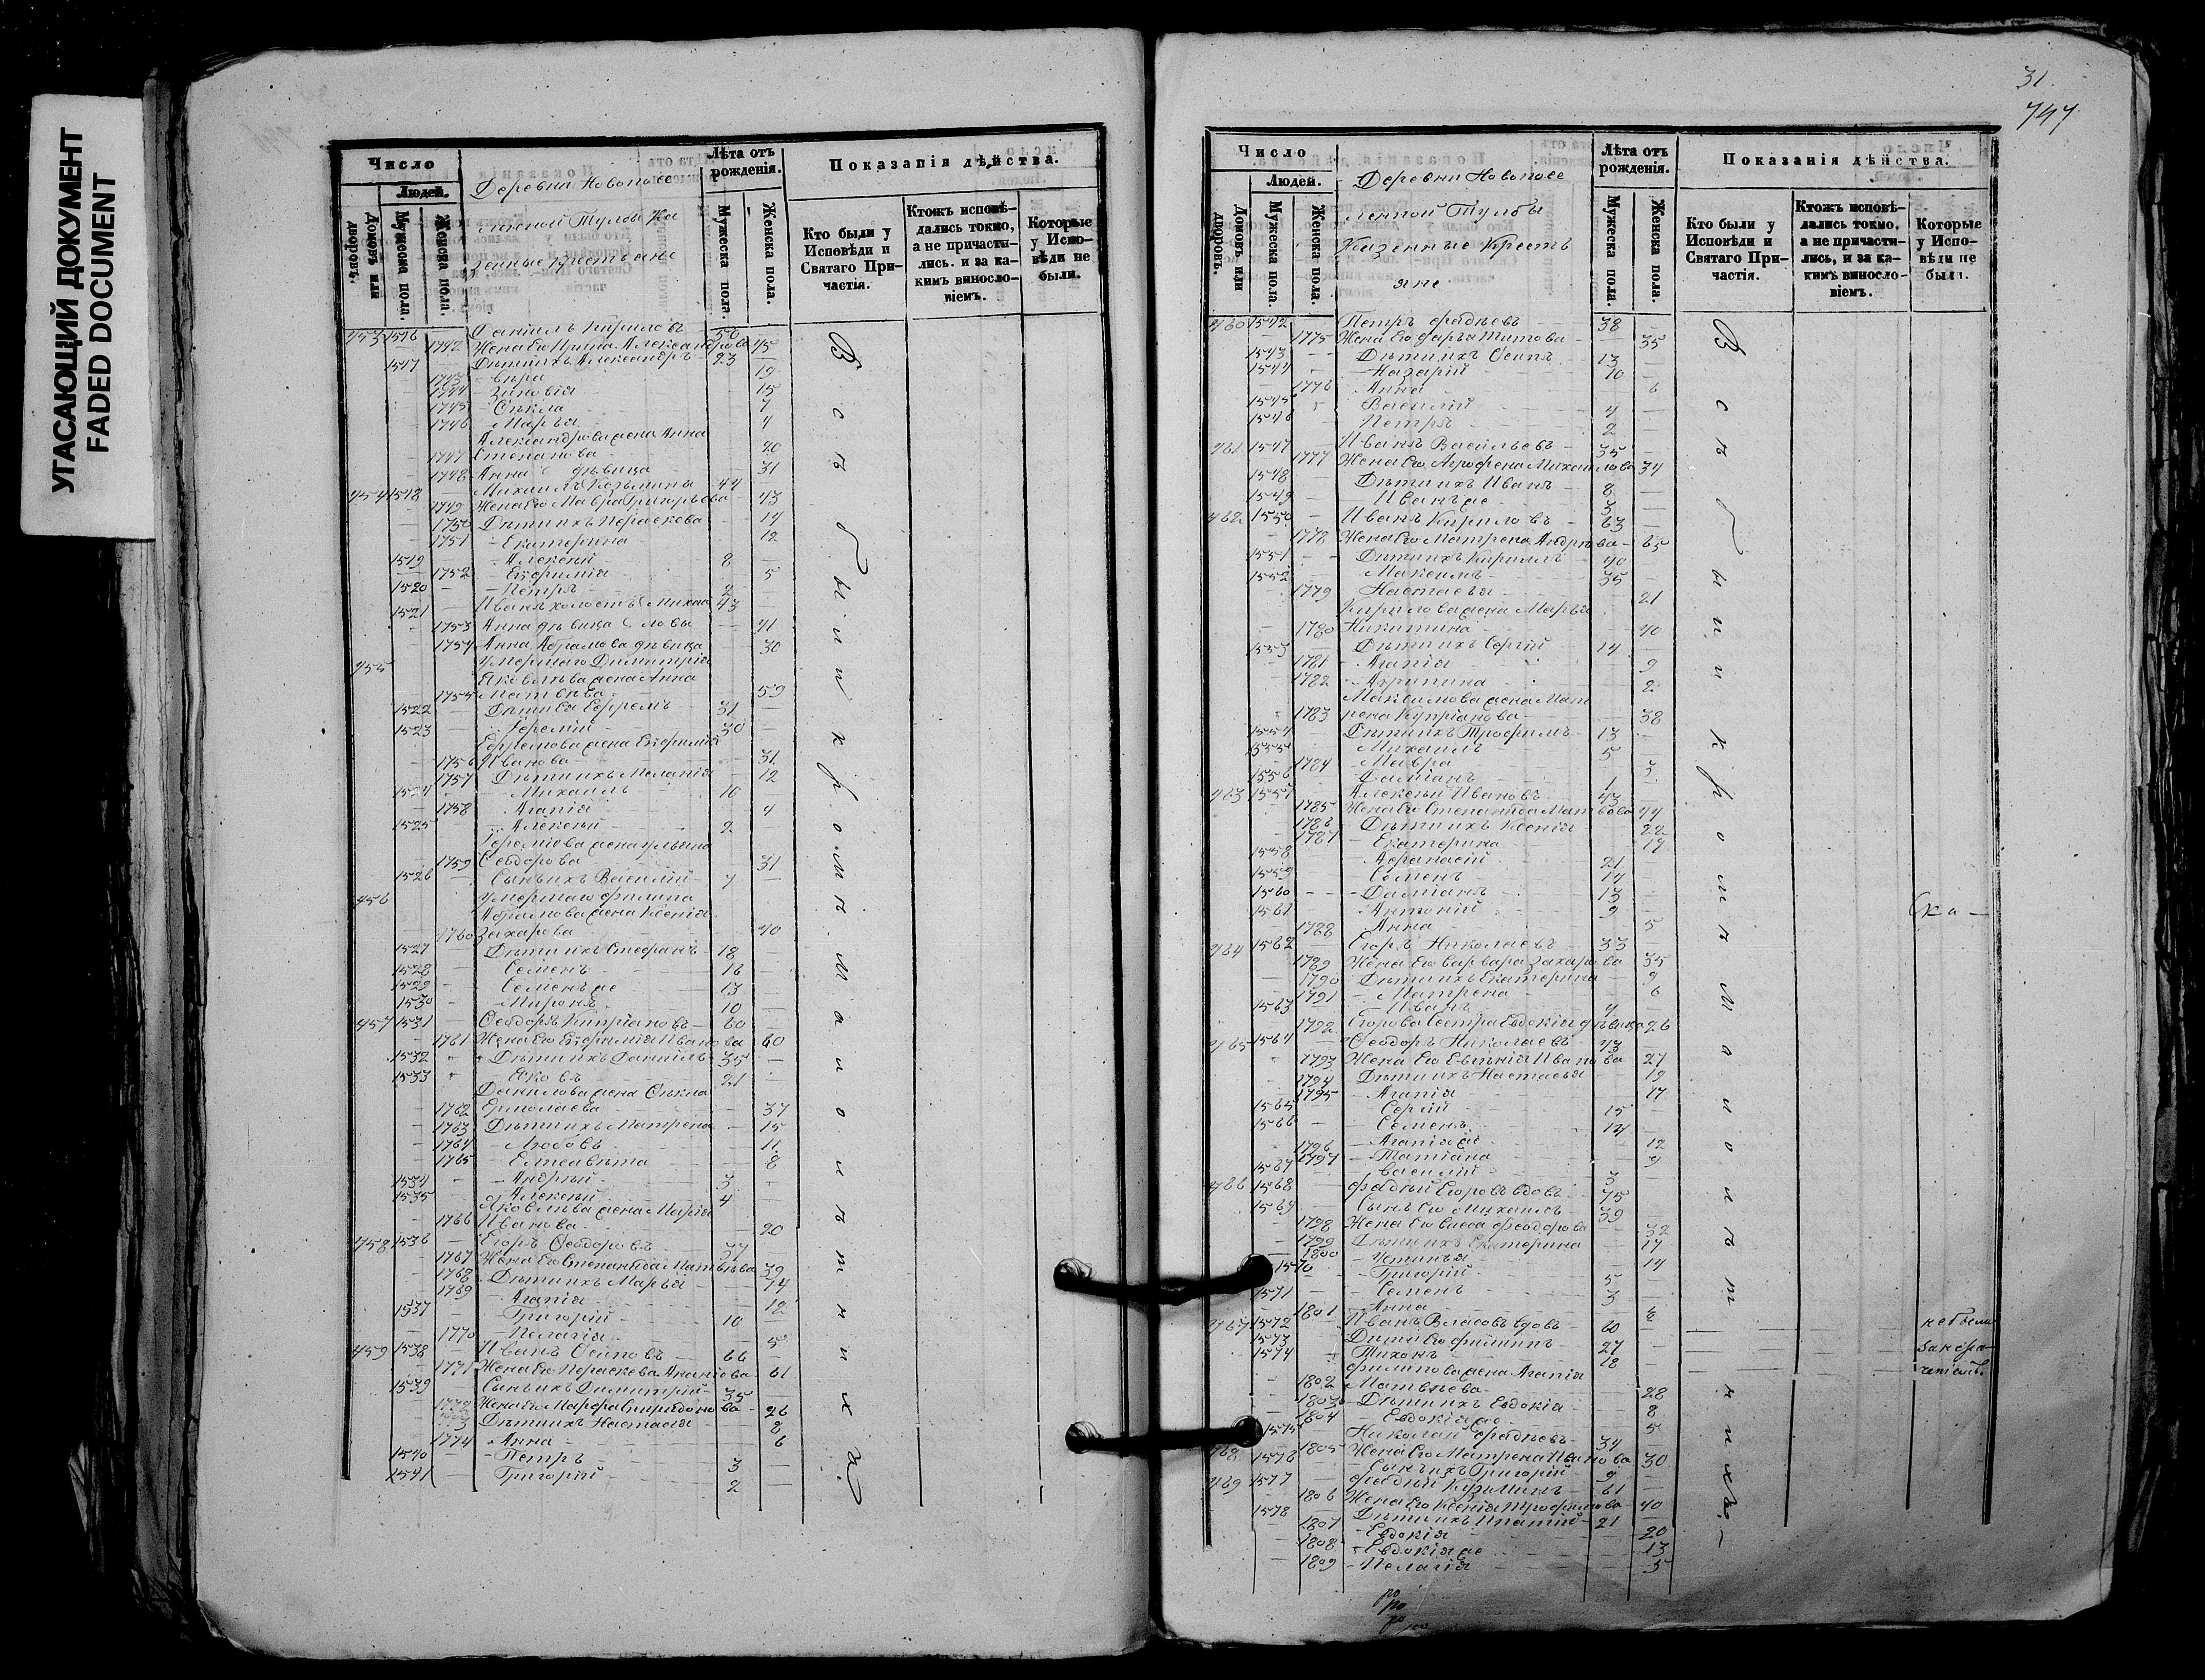 УГАСАЮЩИЙ ДОКУМЕНТ
FADED DOCUMENT
Число
Людей.
Домовъ или дворовъ.
Мужеска пола.
Женска пола.
Деревня Новопосе
ленной Тулбы Ка
зенные крестьяне
Лѣта отъ рожденія.
Мужеска пола.
Женска пола.
Показанія дѣйства.
Кто были у Исповѣди и Святаго Причастія.
Ктожъ исповѣдались токмо, а не причастились. и за какимъ винословіемъ.
Которые у Исповѣди не были.
453 1516 Даніилъ Кириловъ 50
1742 Жена Его Ирина Александрова 45
1517 Дѣти ихъ Александръ 23
1743 Вѣра 19
1744 Зиновія 15
1745 Ѳекла 7
1746 Марья 4
Александрова жена Анна
1747 Степанова 20
1748 Анна дѣвица 31
454 1518 Михаилъ Козьминъ 44
1749 Жена Его Мавра Григорьева 43
1750 Дѣти ихъ Параскева 14
1751 Екатерина 12
1519 Алексѣй 8
1752 Евфимія 5
1520 Петръ 2
1521 Иванъ холостъ 43
1753 Анна дѣвица 41
1754 Анна Абрамова дѣвица 30
455 Умершаго Димитрія
Яковлѣва жена Анна
1755 Матвѣева 59
1522 Дѣти Ея Ефремъ 31
1523 Іеремій 30
Ефремова жена Евфимія
1756 Иванова 31
1757 Дѣти ихъ Меланія 12
1524 Михаилъ 10
1758 Агапія 4
1525 Алексѣй 2
Іереміова жена Ульяна
1759 Ѳеодорова 31
1526 Сынъ ихъ Василій 7
456 Умершаго Филипа
Абрамова жена Ксенія
1760 Захарова 40
1527 Дѣти ихъ Стефанъ 18
1528 Семенъ 16
1529 Семенъ же 13
1530 Миронъ 10
457 1531 Ѳеодоръ Кипріановъ 60
1761 Жена Его Евфимія Иванова 60
1532 Дѣти ихъ Даніилъ 35
1533 Яковъ 21
Данилова жена Ѳекла
1762 Ермолаева 37
1763 Дѣти ихъ Матрена 15
1764 Любовь 11
1765 Елисавѣта 8
1534 Андрѣй 3
1535 Алексѣй 4
Яковлѣва жена Марія
1766 Иванова 20
458 1536 Егоръ Ѳеодоровъ 37
1767 Жена Его Степанида Матвѣева 39
1768 Дѣти ихъ Марья 14
1769 Агапія 12
1537 Григорій 10
1770 Пелагія 5
459 1538 Иванъ Осиповъ 66
1771 Жена Его Параскева Ананіова 61
1539 Сынъ ихъ Димитрій 35
1772 Жена Его Марфа Спиридонова 26
1773 Дѣти ихъ Настасія 8
1774 Анна 6
1540 Петръ 3
1541 Григорій 2
Всѣ были кромѣ малолѣтнихъ
31.
747
Число
Людей.
Домовъ или дворовъ.
Мужеска пола.
Женска пола.
Деревни Новопосе
ленной Тулбы
Казенные Кресть
яне
Лѣта отъ рожденія.
Мужеска пола.
Женска пола.
Показанія дѣйства.
Кто были у Исповѣди и Святаго Причастія.
Ктожъ исповѣдались токмо, а не причастились, и за какимъ винословіемъ.
Которые у Исповѣди не были.
460 1542 Петръ Фадѣевъ 38
1775 Жена Его Дарья Титова 35
1543 Дѣти ихъ Осипъ 13
1544 Назарій 10
1776 Анна 6
1545 Василій 4
1546 Петръ 2
461 1547 Иванъ Васильевъ 35
1777 Жена Его Агрофена Михаилова 34
1548 Дѣти ихъ Иванъ 8
1549 Иванъ же 3
462 1550 Иванъ Кириловъ 63
1778 Жена Его Матрена Андрѣева 65
1551 Дѣти ихъ Кириллъ 40
1552 Максимъ 35
1779 Настасья 21
Кирилова жена Марья
1780 Никитина 40
1553 Дѣти ихъ Сергій 14
1781 Агапія 9
1782 Агрипина 2
Максимова жена Мат
1783 рена Купріанова 38
1554 Дѣти ихъ Трофимъ 13
1555 Михаилъ 5
1784 Мавра 3
1556 Даміанъ 1
463 1557 Алексѣй Ивановъ 43
1785 Жена Его Степанида Матвѣева 44
1786 Дѣти ихъ Ксенія 22
1787 Екатерина 19
1558 Афанасій 21
1559 Семенъ 14
1560 Даміанъ 13
1561 Антоній 9
1788 Анна 5
464 1562 Егоръ Николаевъ 33
1789 Жена Его Варвара Захарова 35
1790 Дѣти ихъ Екатерина 9
1791 Матрена 6
1563 Иванъ 4
1792 Егорова Сестра Евдокія дѣвица 26
465 1564 Ѳеодоръ Николаевъ 43
1793 Жена Его Евгѣнія Иванова 27
1794 Дѣти ихъ Настасья 19
1795 Агапія 17
1565 Сергій 15
1566 Семенъ 14
1796 Агапія же 12
1797 Татіана 9
1567 Василій 3
466 1568 Фадѣй Егоровъ вдовъ 75
1569 Сынъ Его Михаилъ 39
1798 Жена Его Васса Ѳеодорова 32
1799 Дѣти ихъ Екатерина 17
1800 Устинья 14
1570 Григорій 5
1571 Семенъ 3
1801 Анна
467 1572 Иванъ Власовъ вдовъ 60
1573 Дѣти Его Филиппъ 27
1574 Тихонъ 18
Филипова жена Агапія
1802 Матвѣева 28
1803 Дѣти ихъ Евдокія 8
1804 Евдокія же 5
468 1575 Николай Фадѣевъ 34
1805 Жена Его Матрена Иванова 30
1576 Сынъ ихъ Григорій 9
469 1577 Фадѣй Кузминъ 61
1806 Жена Его Ксенія Трофимова 40
1578 Дѣти ихъ Ипатій 21
1807 Евдокія 20
1808 Евдокія же 13
1809 Пелагія 5
Всѣ были кромѣ малолѣтнихъ
небыли
ро
ро
ро
ро